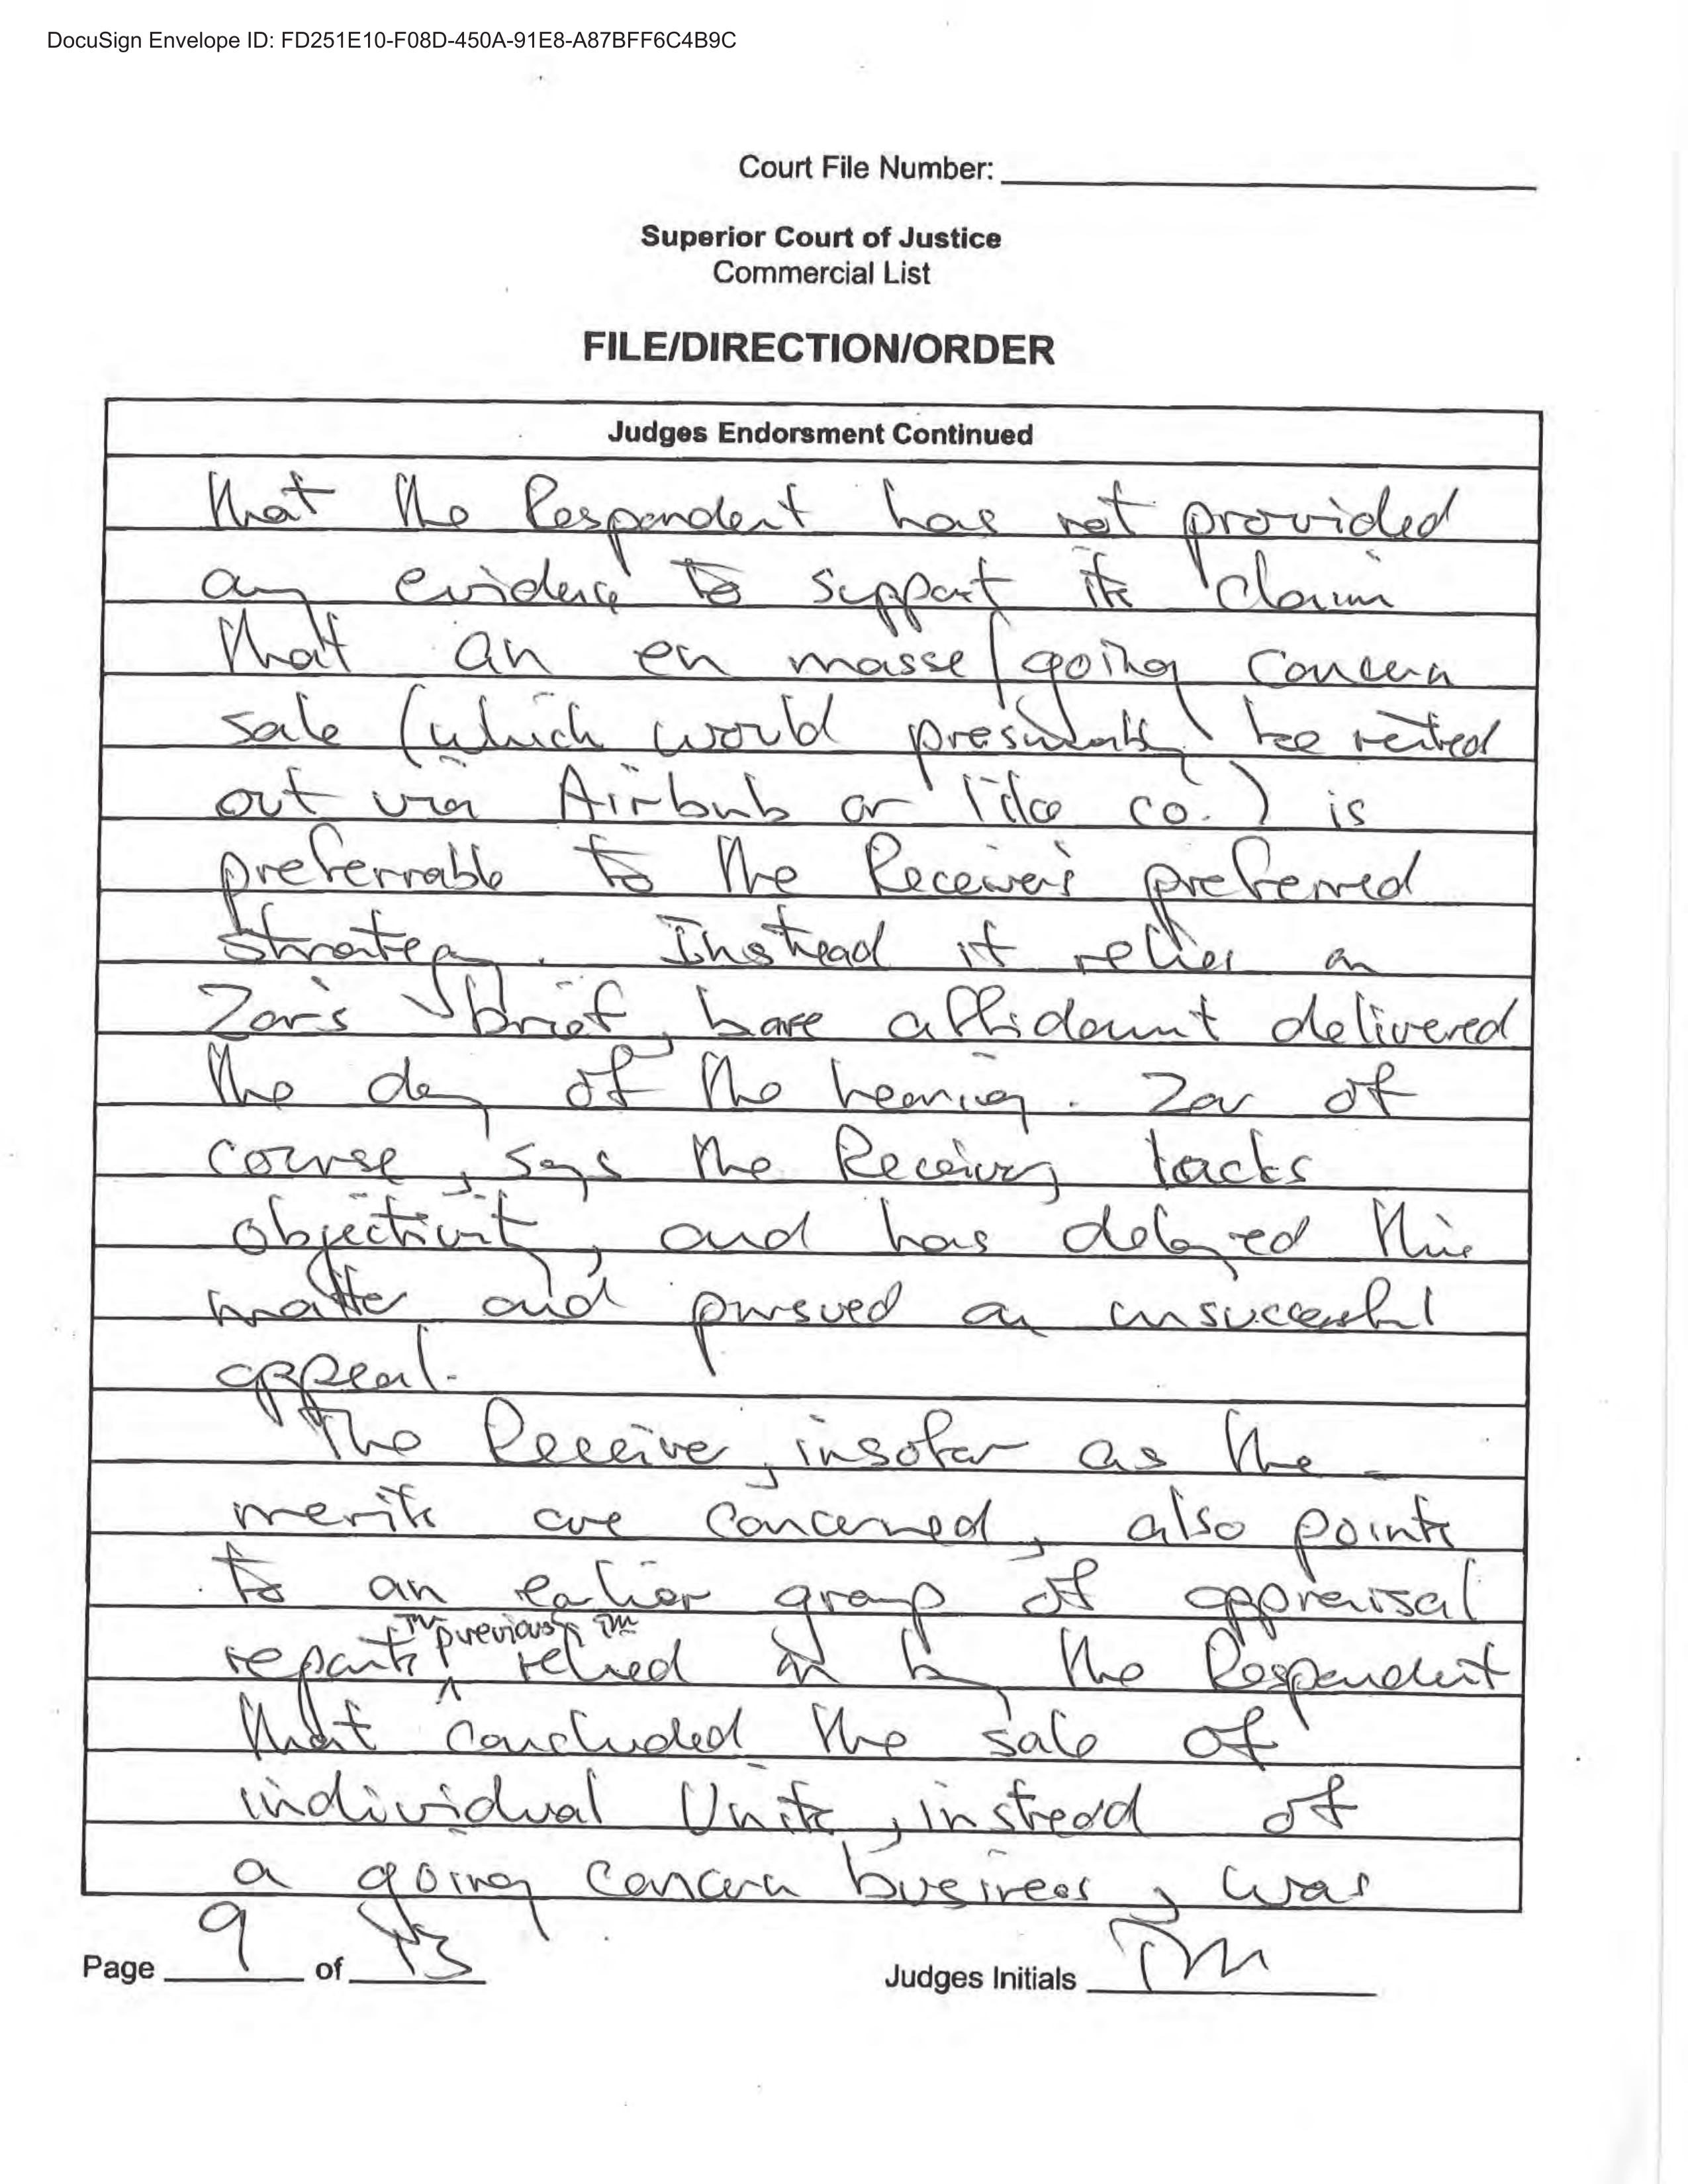 DocuSign Envelope ID: FD251E10-F08D-450A-91E8-A87BFF6C4B9C
Court File Number:
Superior Court of Justice
Commercial List
FILE/DIRECTION/ORDER
Judges Endorsment Continued
that the Respondent has not provided
any evidence to support its claim
that an en masse/going concern
sale (which would presumably be rented
out via Airbnb or like co.) is
preferrable to the Receiver's preferred
strategy. Instead it relies on
Zar's brief, bare affidavit delivered
the day of the hearing. Zar of
course, says the Receiver lacks
objectivity, and has delayed this
matter and pursued an unsuccessful
appeal.
The Receiver, insofar as the
merits are concerned, also points
to an earlier group of appraisal
TM previously TM
reports relied on by the Respondent
that concluded the sale of
individual Units, instead of
a going concern business, was
Page 9 of 13
Judges Initials TM